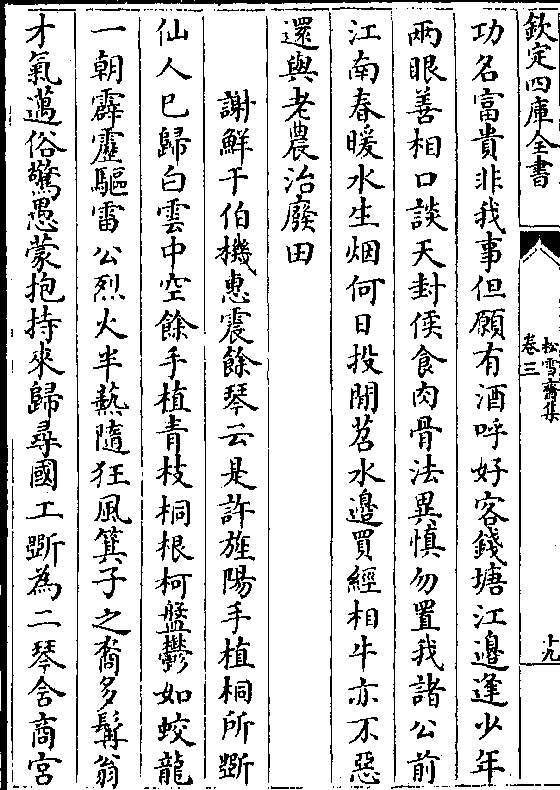 欽定四庫全書
松雪齋集
卷三
十九
功名富貴非我事但願有酒呼好客錢塘江邊逢少年
兩眼善相口談天封侯食肉骨法異慎勿置我諸公前
江南春暖水生烟何日投閒苕水邊買經相牛亦不惡
還與老農治廢田
謝鮮于伯機惠震餘琴云是許旌陽手植桐所斲
仙人已歸白雲中空餘手植青枝桐根柯盤鬱如蛟龍
一朝霹靂驅雷公烈火半爇隨狂風箕子之裔多髯翁
才氣邁俗驚愚蒙抱持來歸尋國工斲為二琴含商宮